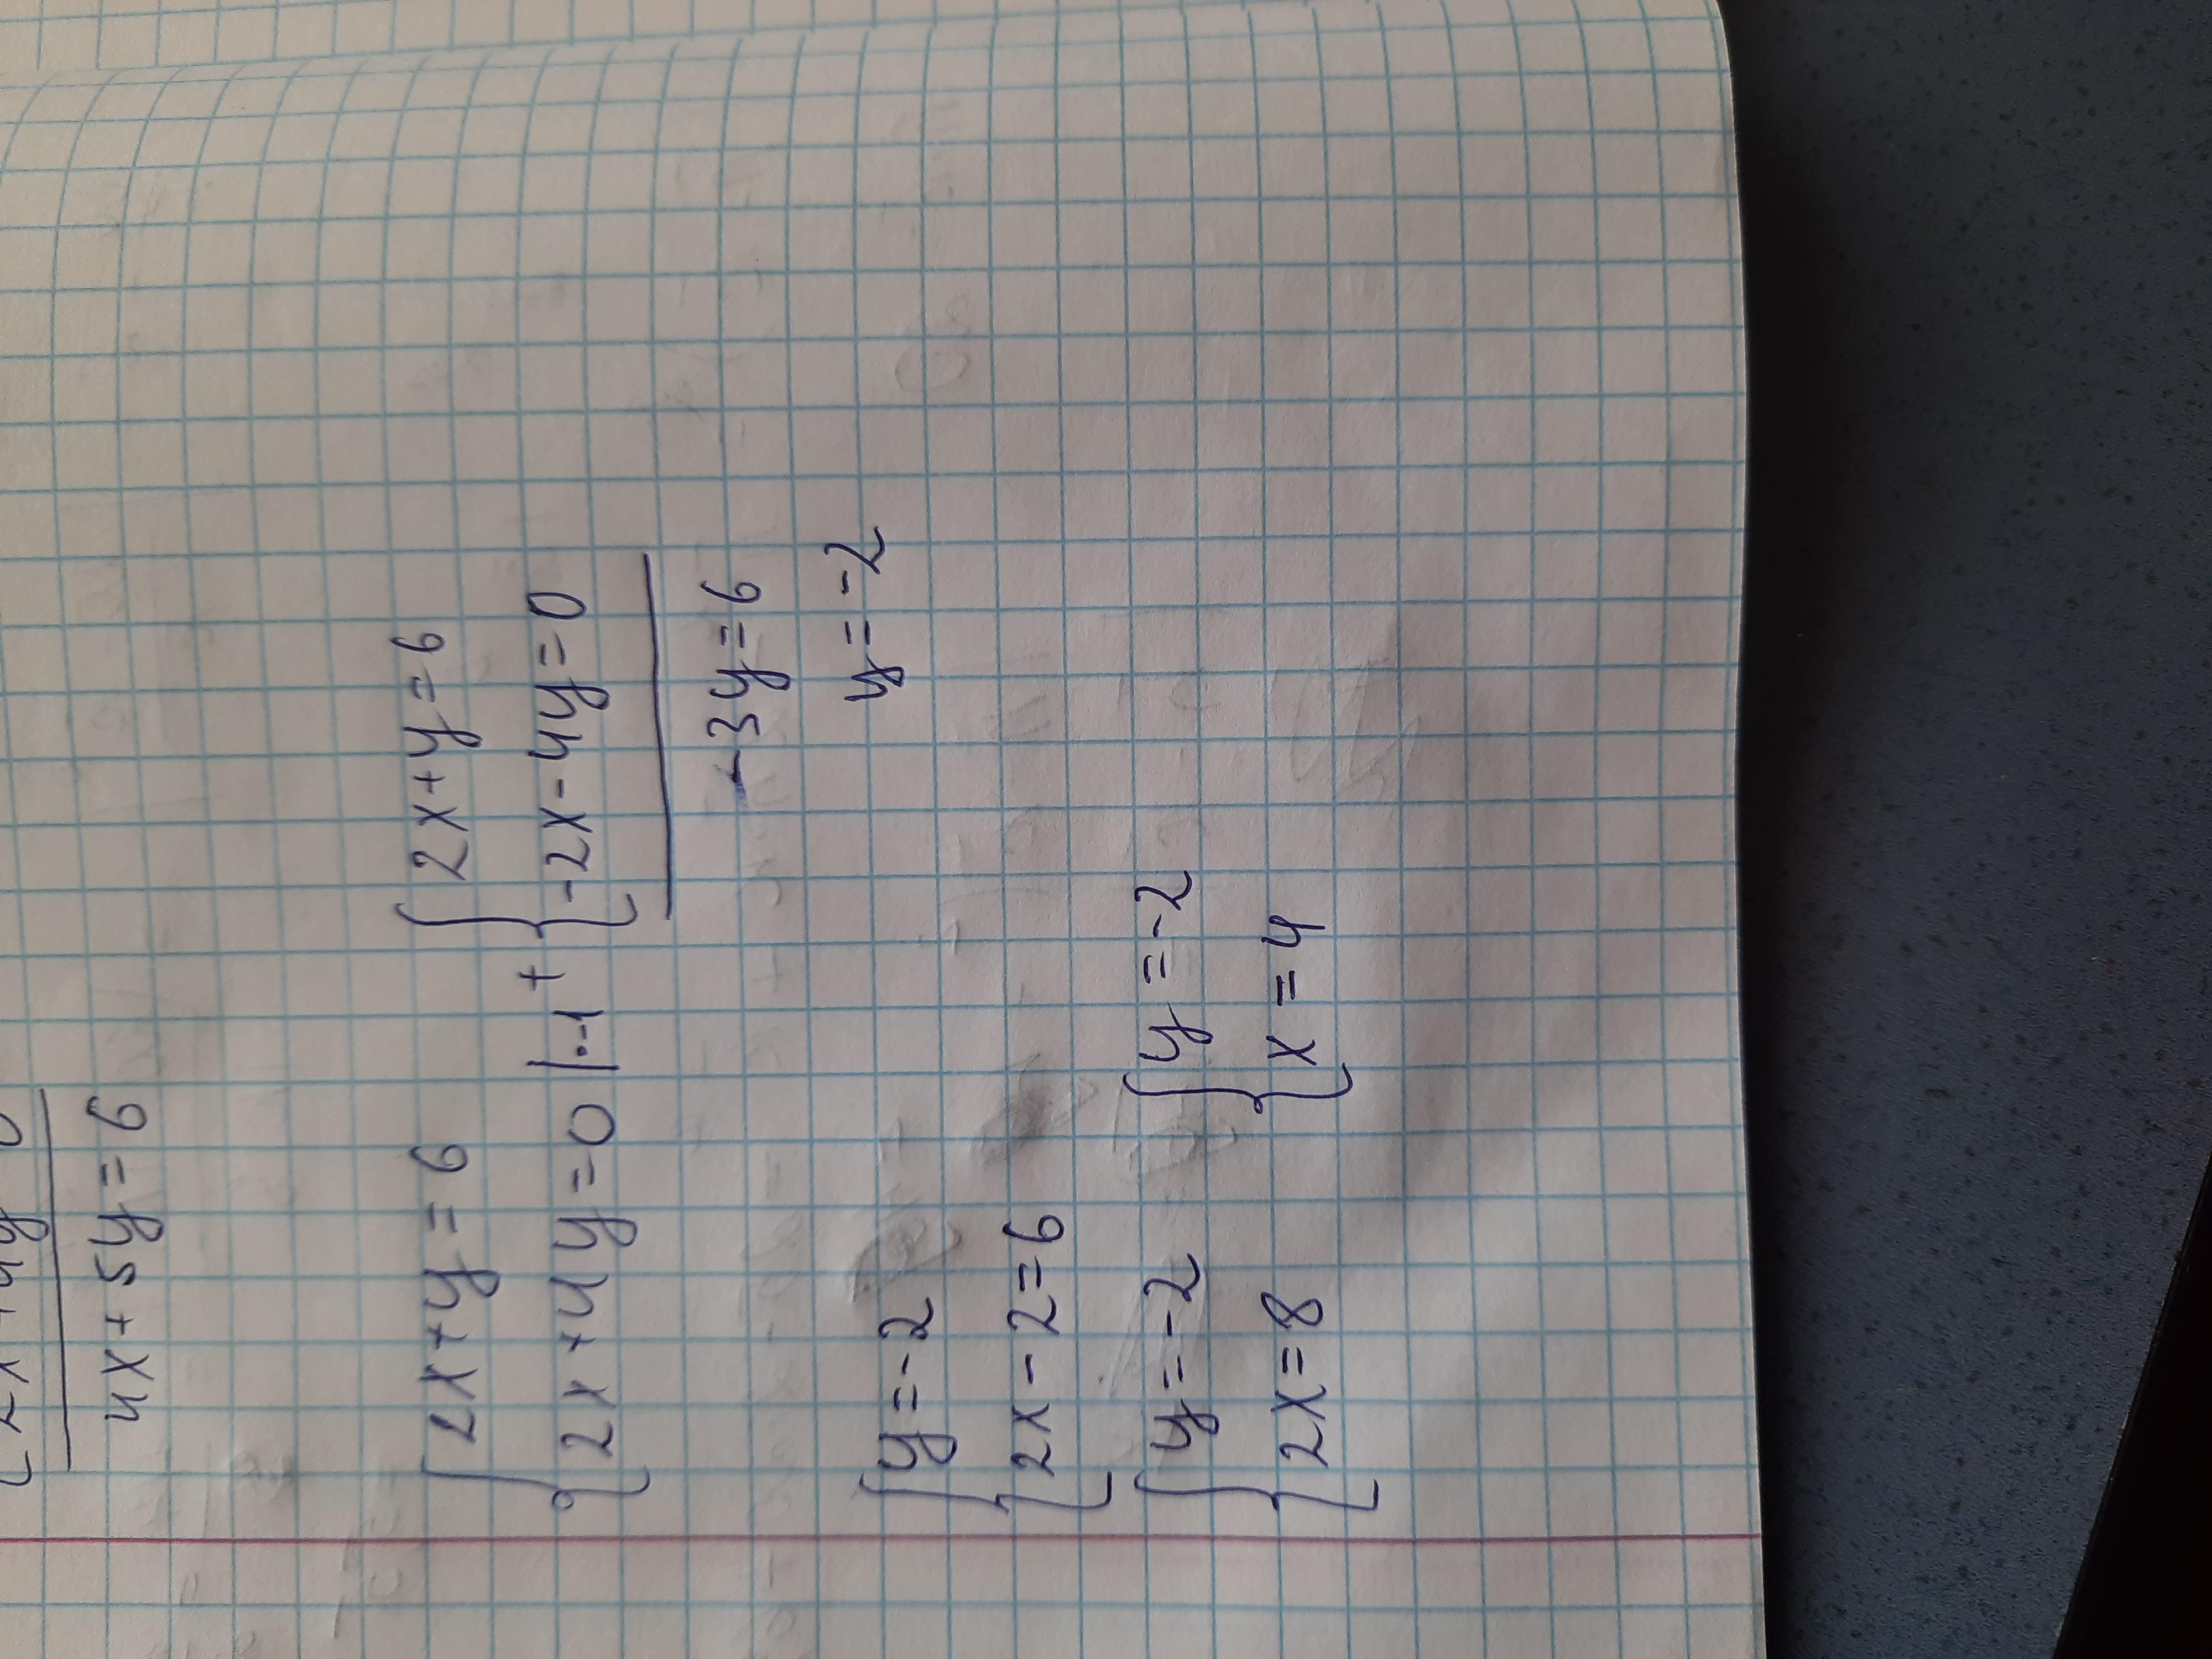 4x+5y=6
{2x+y=6
{2x+4y=0 |·-1 +
{2x+y=6
{-2x-4y=0
-3y=6
y=-2
{y=-2
{2x-2=6
{y=-2
{2x=8
{y=-2
{x=4